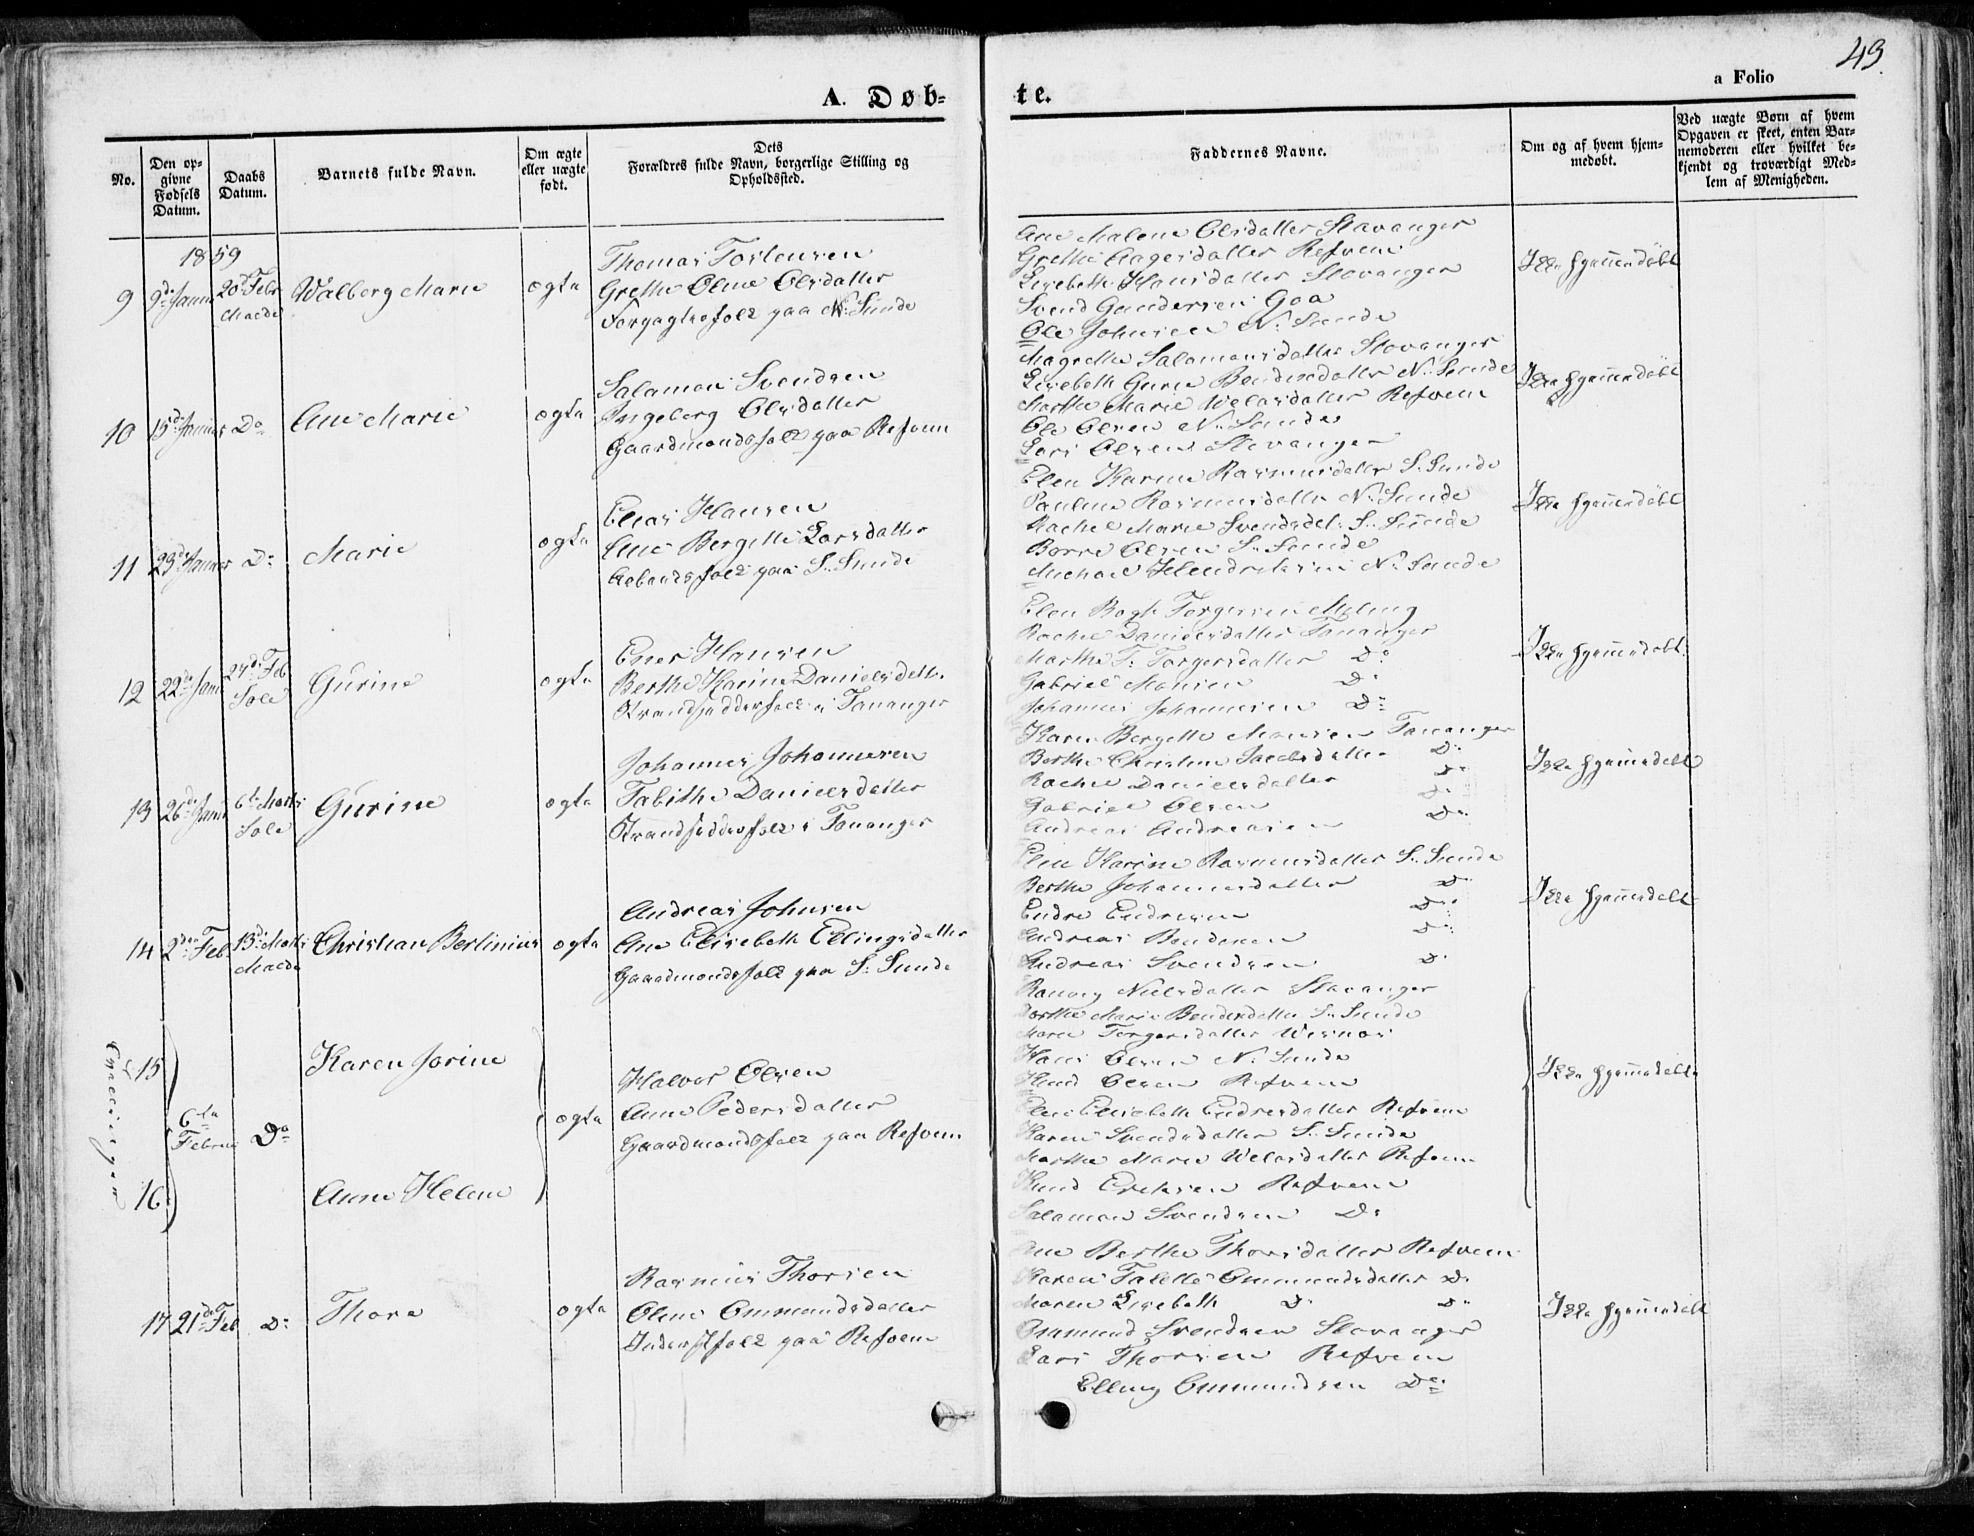 43.
a Folio
A. Døb-
te.
No.
Den op-
givne
Fødsels
Datum.
Daabs
Datum.
Barnets fulde Navn.
Om ægte
eller uægte
født.
Dets
Forældres fulde Navn, borgerlige Stilling og
Opholdssted.
Faddernes Navne.
Om og af hvem hjem-
medøbt.
Ved uægte Børn af hvem
Opgaven er skeet, enten Bar-
nemoderen eller hvilket be-
kjendt og troværdigt Med-
lem af Menigheden.
1859
9 9de Janu 20de Febr Walborg Marie ægte
Madla
Thomas
Grethe Oline Olsdatter
gaa N. Sunde
Ane Malene Olsdatter Stavanger
Grethe Aagesdatter Refvem
Lisebeth Hansdatter Stavanger
Svend Gundersen Goa
Ole Johnsen N. Sunde
Ikke hjemmedøbt
10 15de Januar Do Ane Marie ægte
Salamon Svendsen
Ingeborg Olsdatter
Gaardmandsfolk paa Refvem
Magrethe Salamonsdatter Stavanger
Lisebeth Gurie Bendixdatter N. Sunde
Marthe Marie Welasdatter Refvem
Ole Olsen N. Sunde
Lars Olsen Stavanger
Ikke hjemmedøbt
11 23de Januar Do Marie ægte
Elias Hansen
Ane Bergette Larsdatter
paa S. Sunde
Elen Karine Rasmusdatter S. Sunde
Pauline Rasmusdatter N. Sunde
Rachel Marie Svendsdet. S. Sunde
Børre Olsen S. Sunde
Michael Hendriksen N. Sunde
Ikke hjemmedøbt
12 22de Janu 27de Feb Gurine ægte
Sole
Hansen
Berthe Karine Danielsdatt.
Strandsidderfolk i Tananger
Elen Torgersen Myling
Rachel Danielsdatter Tananger
Marthe T. Torgersdatter Do
Gabriel Monsen Do
Johannes Johannesen Do
Ikke hjemmedøbt.
13 26de Janu 6te Marts Gurine ægte
Sole
Johannes Johannesen
Tabithe Danielsdatter
Strandsidderfolk i Tananger
Karen Bergette Monsen Tananger
Berthe Christine Jacobsdatter Do
Rachel Danielsdatter Do
Gabriel Olsen Do
Andreas Andreasen Do
Ikke hjemmedøbt
14 2den Feb. 13de Marts Christian Bertinius ægte
Madla
Andreas Johnsen
Ane Elisebeth Ellingsdatter
Gaardmandsfolk paa S. Sunde
Elen Karine Rasmusdatter S. Sunde
Berthe Johannesdatter Do
Endre Endresen Do
Andreas Bendixen Do
Andreas Svendsen Do
Ikke hjemmedøbt
Tvillinger
15 Karen Jorine
6te
Februar Do ægte
16. Anne Helene
Halvor Olsen
Anne Pedersdatter
Gaardmandsfolk paa Refvem
Ranvey Nielsdatter Stavanger
Dorthe Marie Bendixdatter S. Sunde
Maren Torgersdatter
Hans Olsen N. Sunde
Knud Olsen Refvem
Elen Elisebeth Endresdatter Refvem
Karen Svendsdatter S. Sunde
Marthe Marie Welasdatter Refvem
Knud Eriksen Refvem
Salamon Svendsen Do
Ikke hjemmedøbte
17 21de Feb Do Thore ægte
Rasmus Thorsen
Oline Ommundsdatter
Inderstfolk paa Refvem
Ane Berthe Thorsdatter Refvem
Karen Talette Ommundsdatter Do
Maren Lisebeth Do Do
Ommund Svendsen Stavanger
Lars Thorsen Refvem
Elling Ommundsen Do
Ikke hjemmedøbt